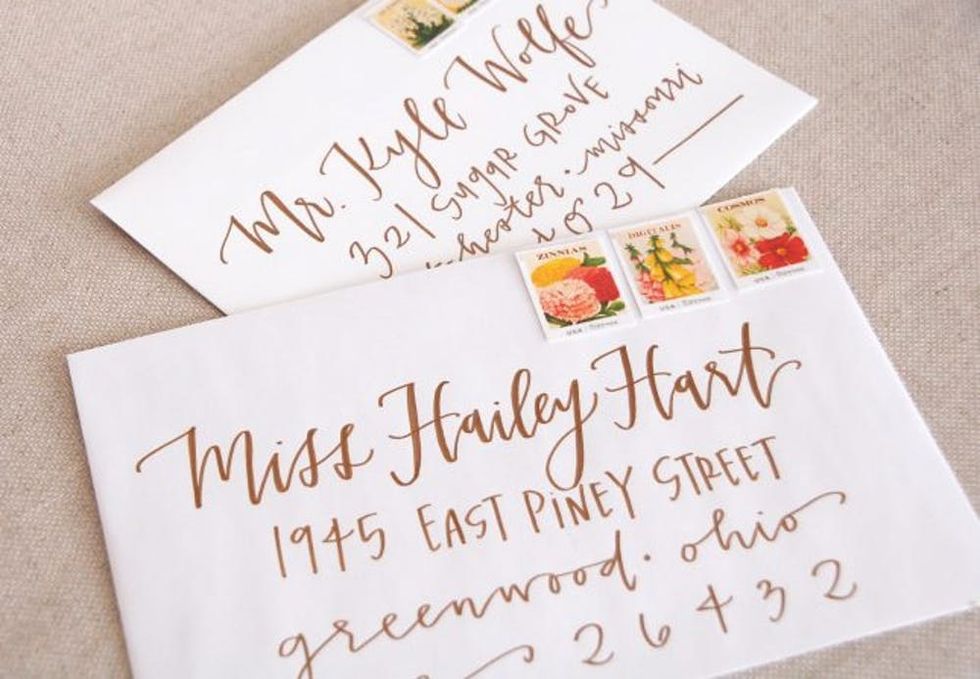 Mr. Kyle Wolfe
321 SUGAR GROVE
missouri
29
ZINNIAS
DIGITALIS
COSMOS
Miss Hailey Hart
1945 EAST PINEY STREET
greenwood. ohio
26432